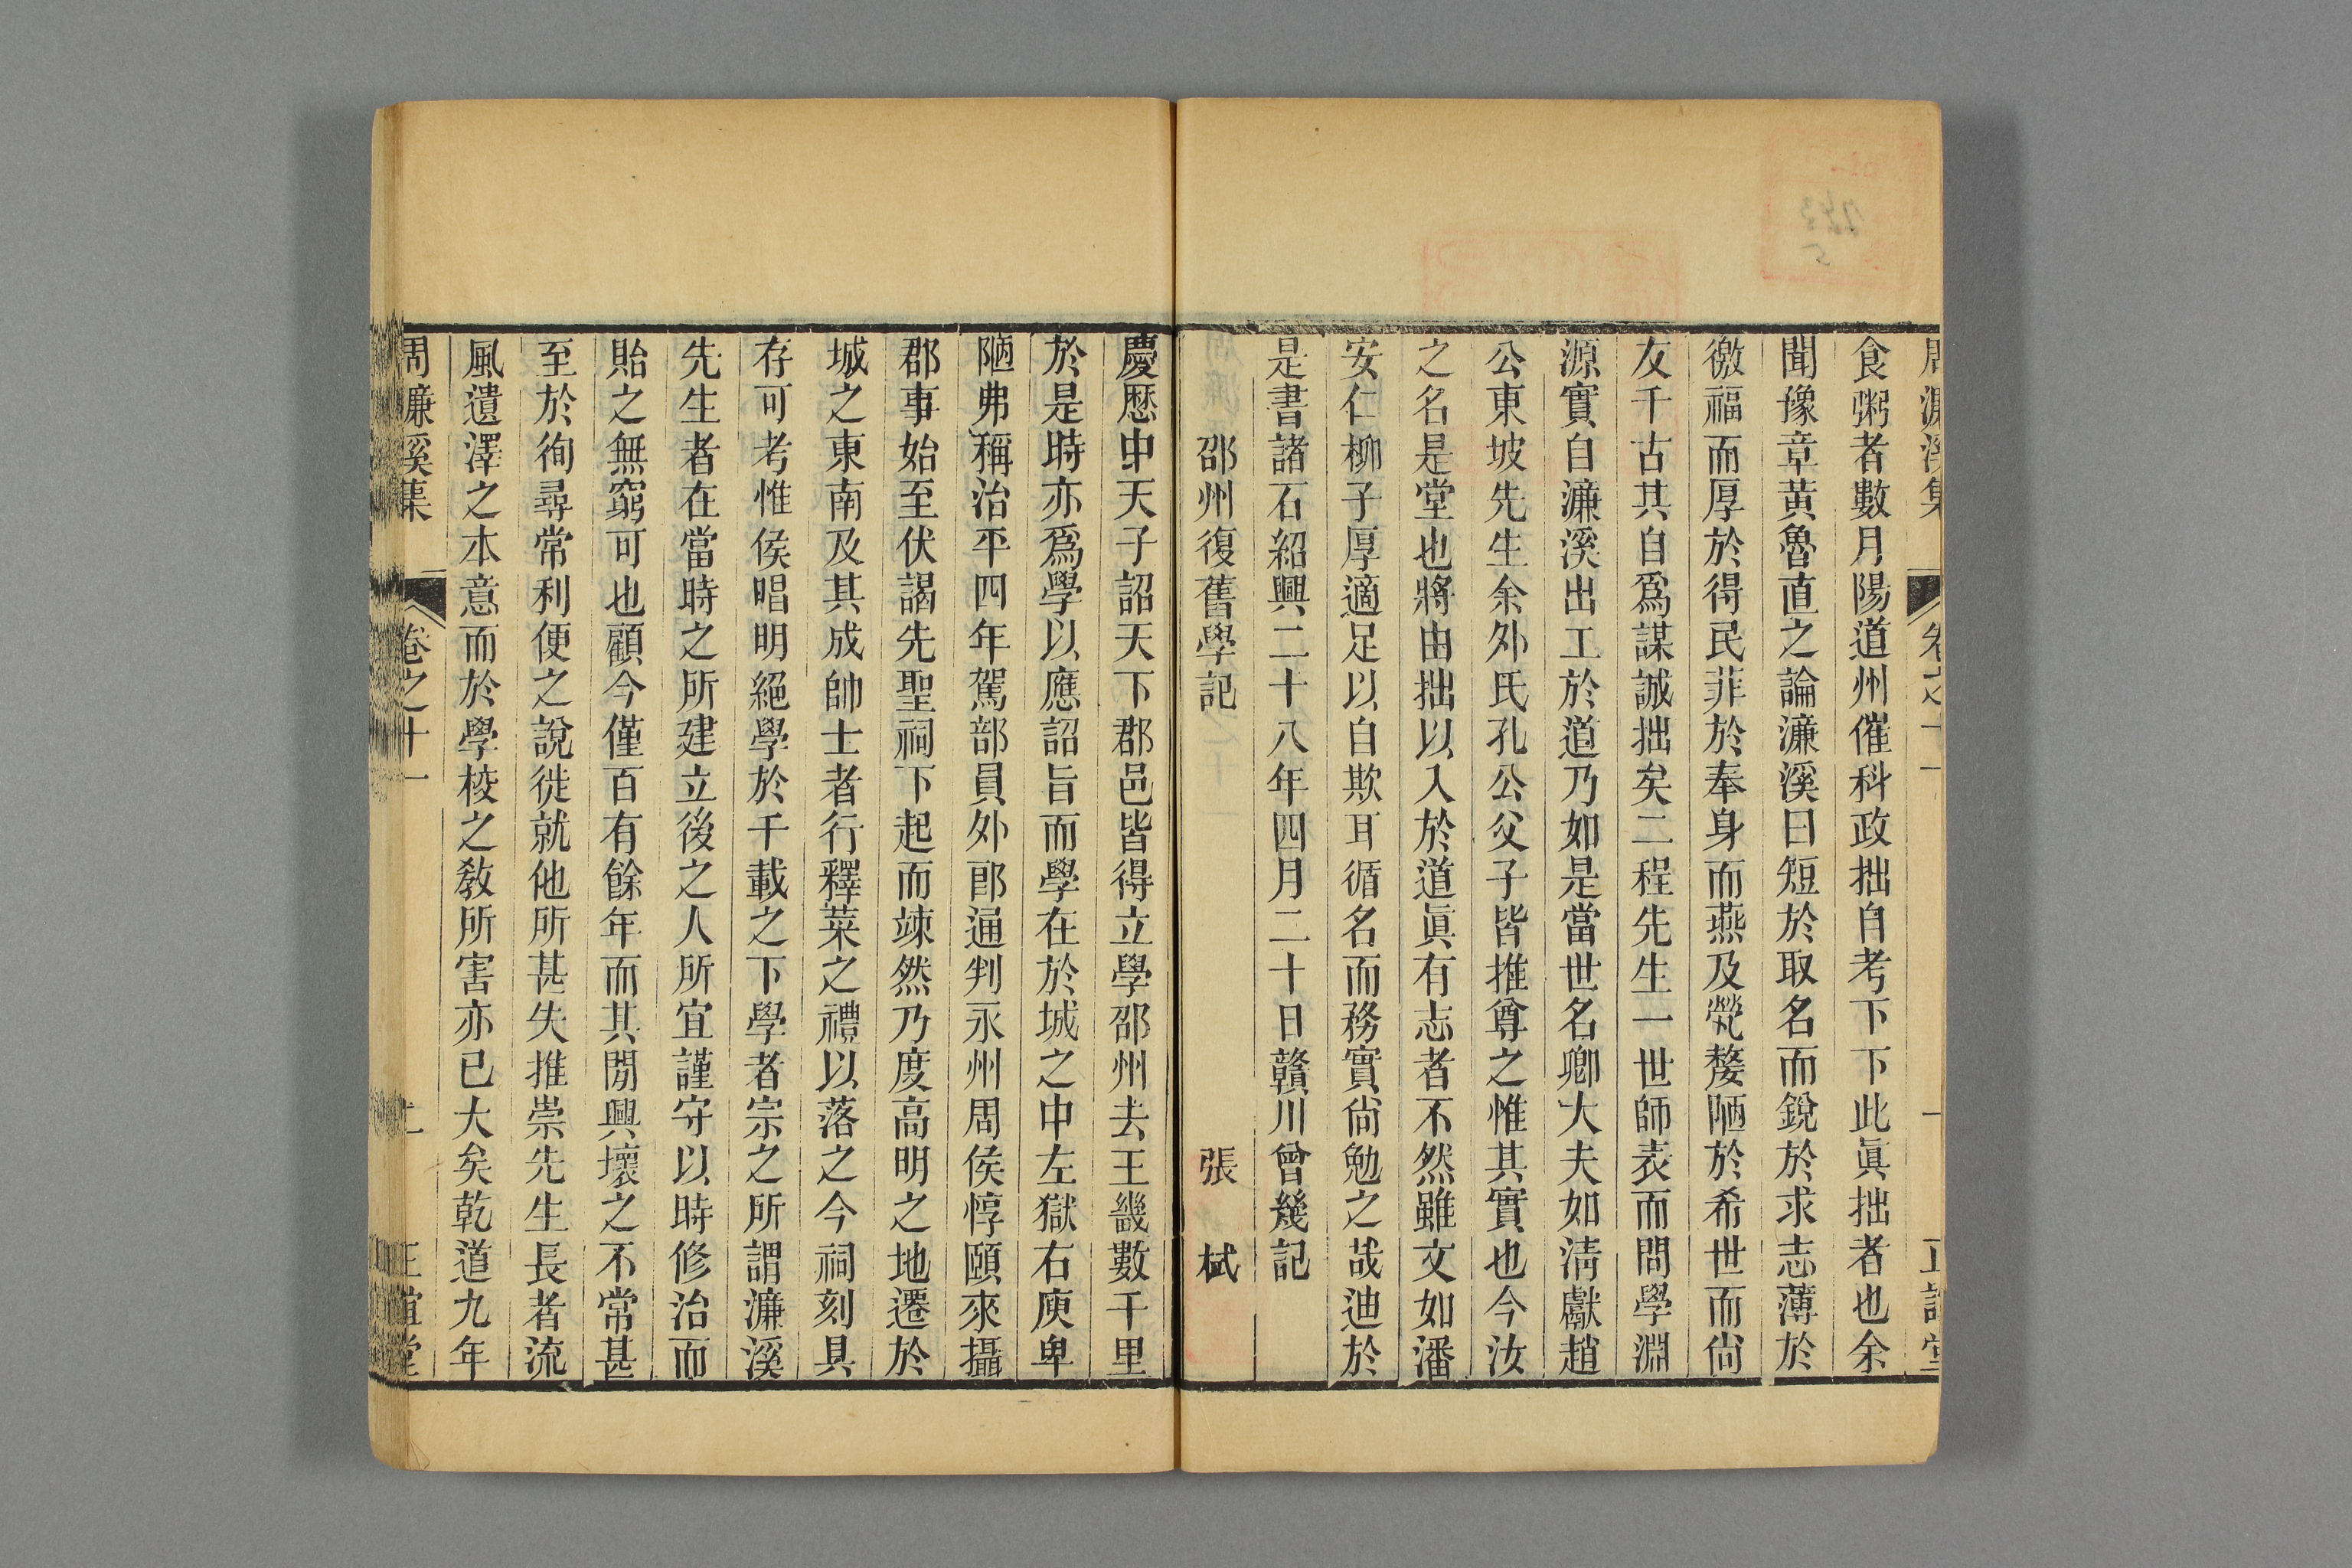 周濂溪集 卷之十一 一 正誼堂
食粥者數月陽道州催科政拙自考下下此眞拙者也余
聞豫章黄魯直之論濂溪曰短於取名而銳於求志薄於
徼福而厚於得民菲於奉身而燕及煢嫠陋於希世而尙
友千古其自爲謀誠拙矣二程先生一世師表而問學淵
源實自濂溪出工於道乃如是當世名卿大夫如淸獻趙
公東坡先生余外氏孔公父子皆推尊之惟其實也今汝
之名是堂也將由拙以入於道眞有志者不然雖文如潘
安仁柳子厚適足以自欺耳循名而務實尙勉之哉迪於
是書諸石紹興二十八年四月二十日贛川曾幾記
邵州復舊學記 張栻
慶歷中天子詔天下郡邑皆得立學邵州去王畿數千里
於是時亦爲學以應詔旨而學在於城之中左獄右庾卑
陋弗稱治平四年駕部員外郎通判永州周侯惇頤來攝
郡事始至伏謁先聖祠下起而竦然乃度高明之地遷於
城之東南及其成帥士者行釋菜之禮以落之今祠刻具
存可考惟侯唱明絕學於千載之下學者宗之所謂濂溪
先生者在當時之所建立後之人所宜謹守以時修治而
貽之無窮可也顧今僅百有餘年而其閒興壞之不常甚
至於徇尋常利便之說徙就他所甚失推崇先生長者流
風遺澤之本意而於學校之敎所害亦已大矣乾道九年
周濂溪集 卷之十一 二 正誼堂